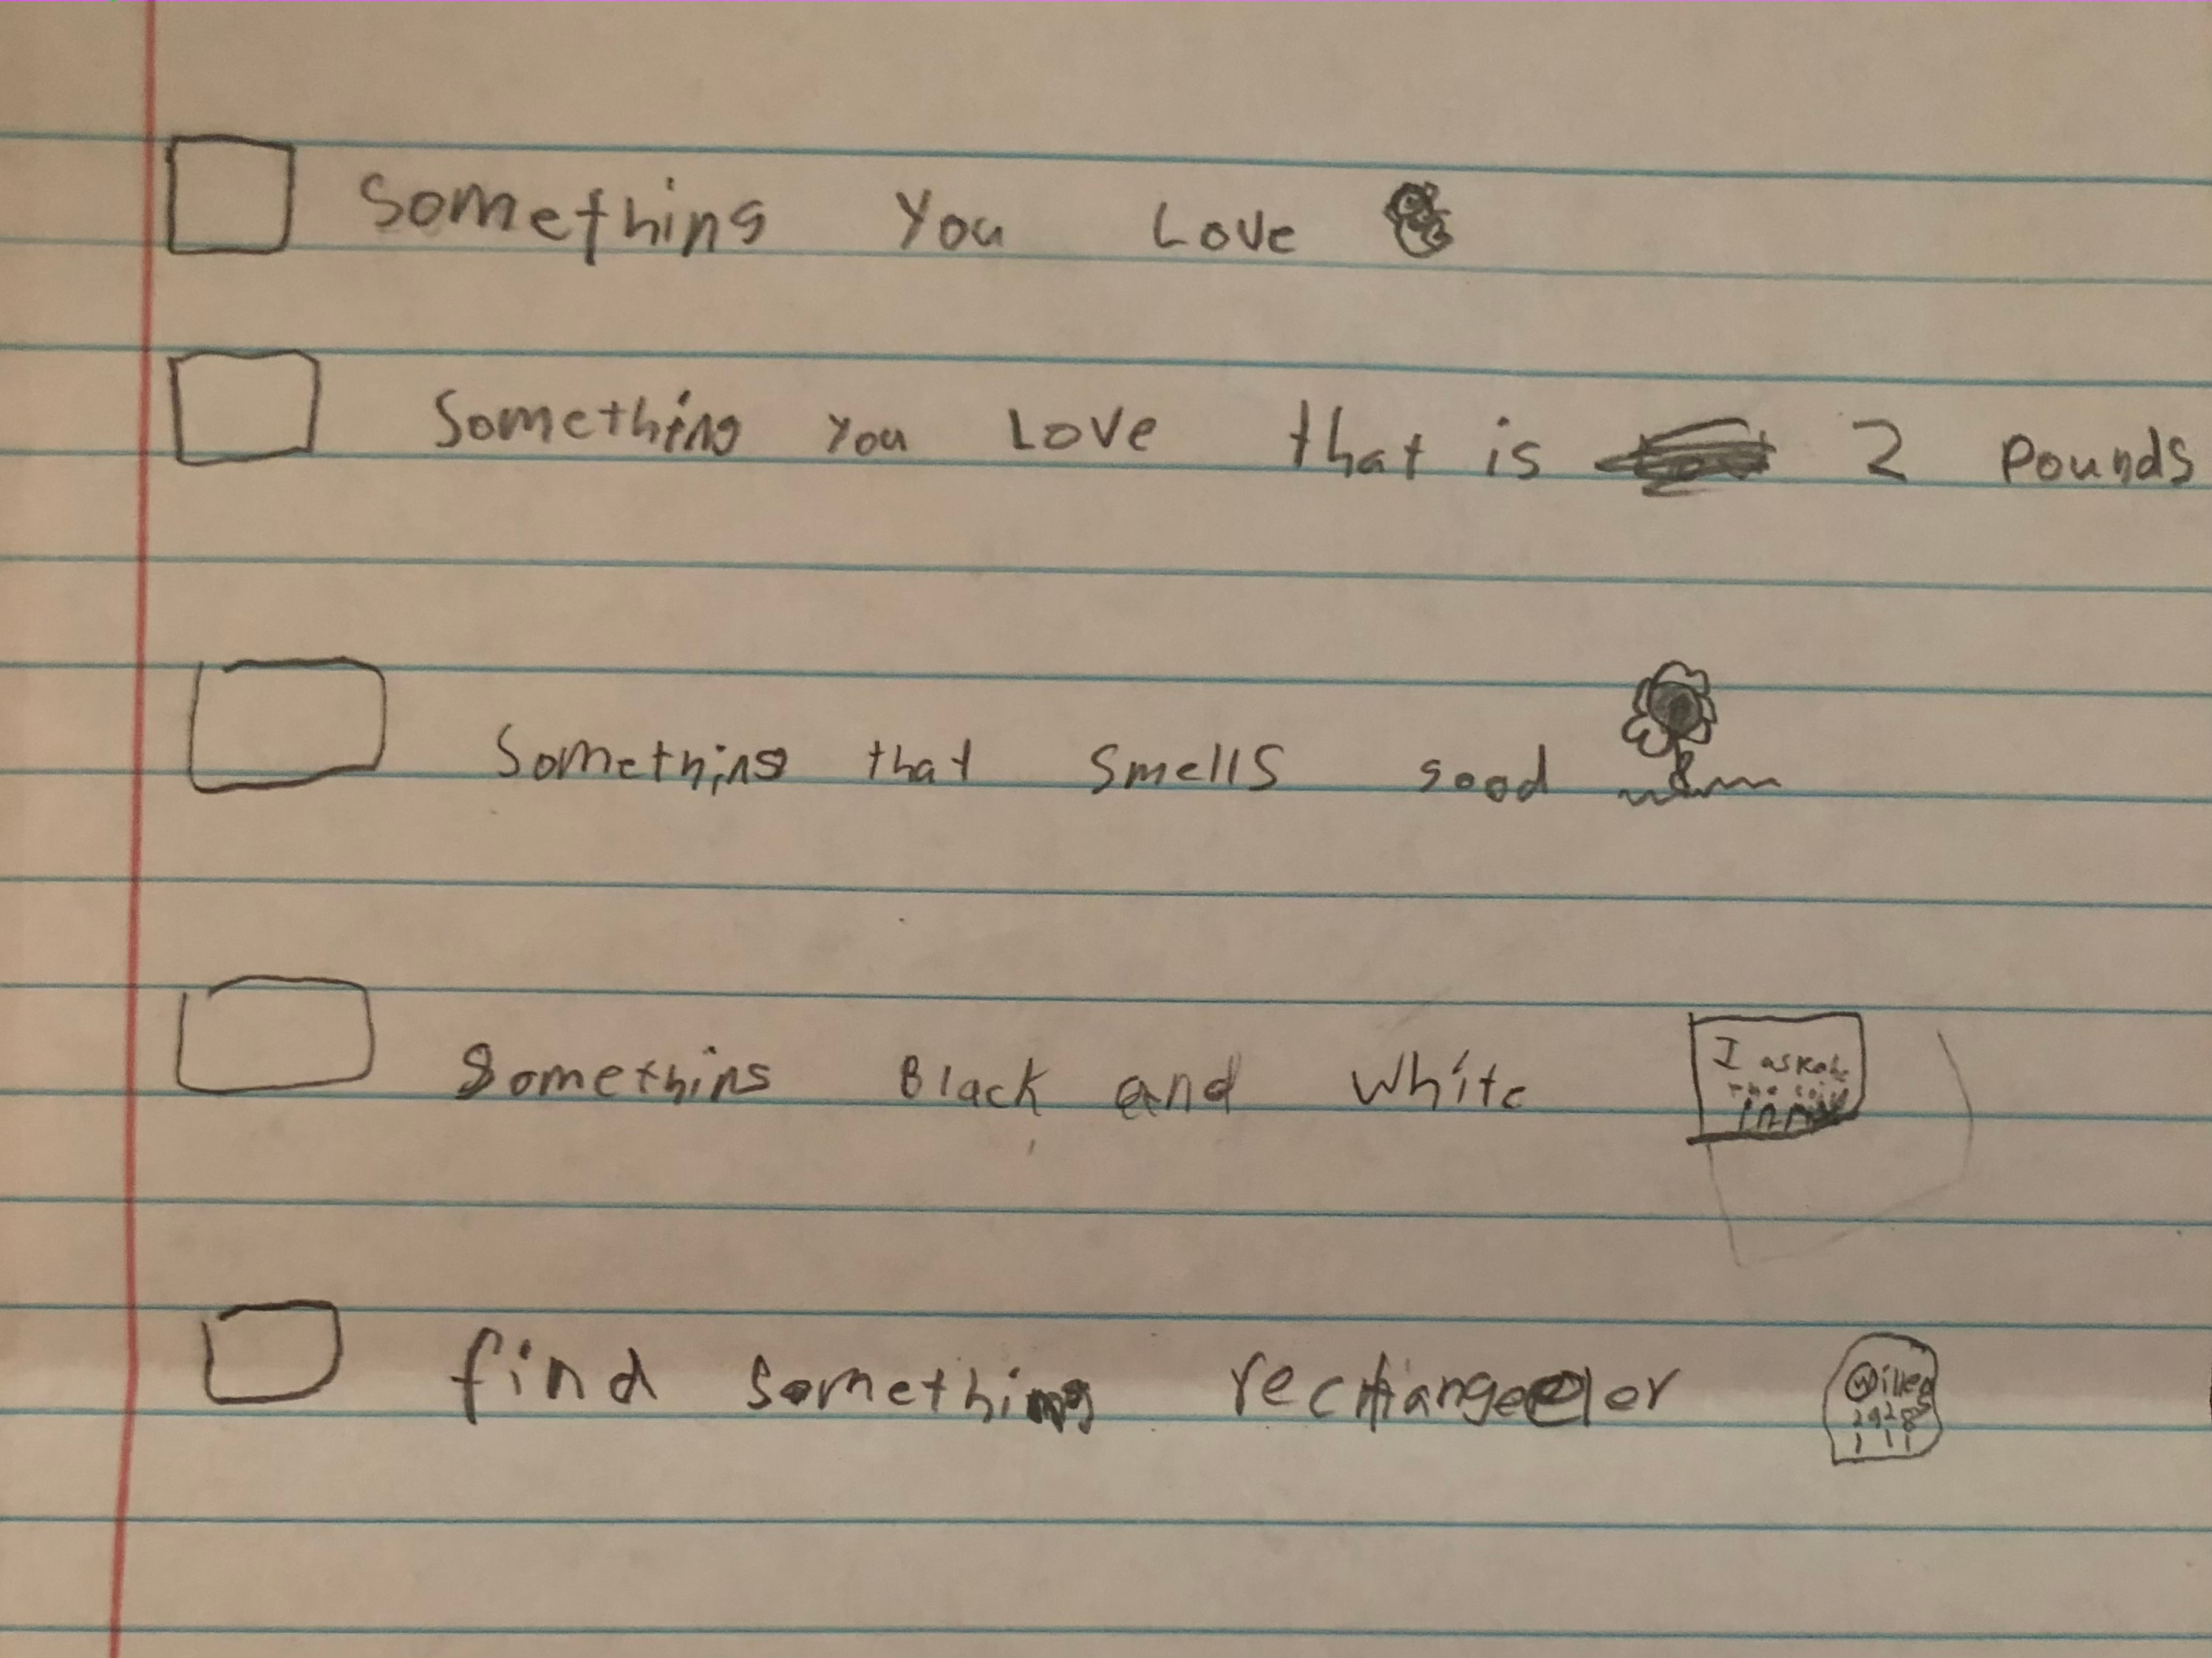 Something You Love
Something you Love that is 2 Pounds
Something that smells good
Something Black and White
I asked
find something rectiangeler